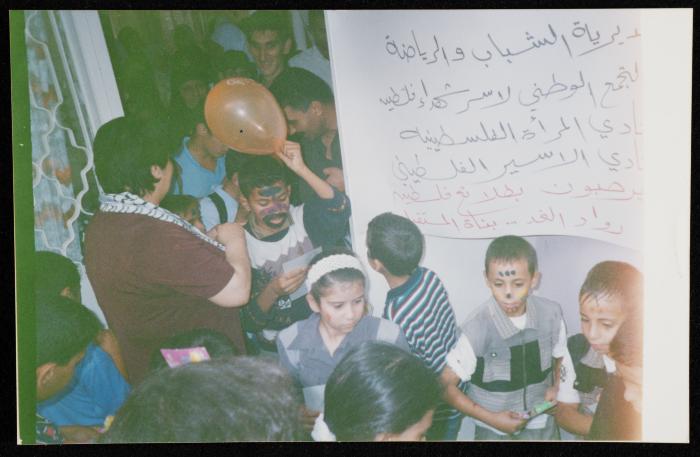 مديرية الشباب والرياضة
التجمع الوطني لاسر شهداء فلسطين
نادي المرأة الفلسطينية
نادي الاسير الفلسطيني
يرحبون بطلائع فلسطين
رواد الغد .. بناة المستقبل